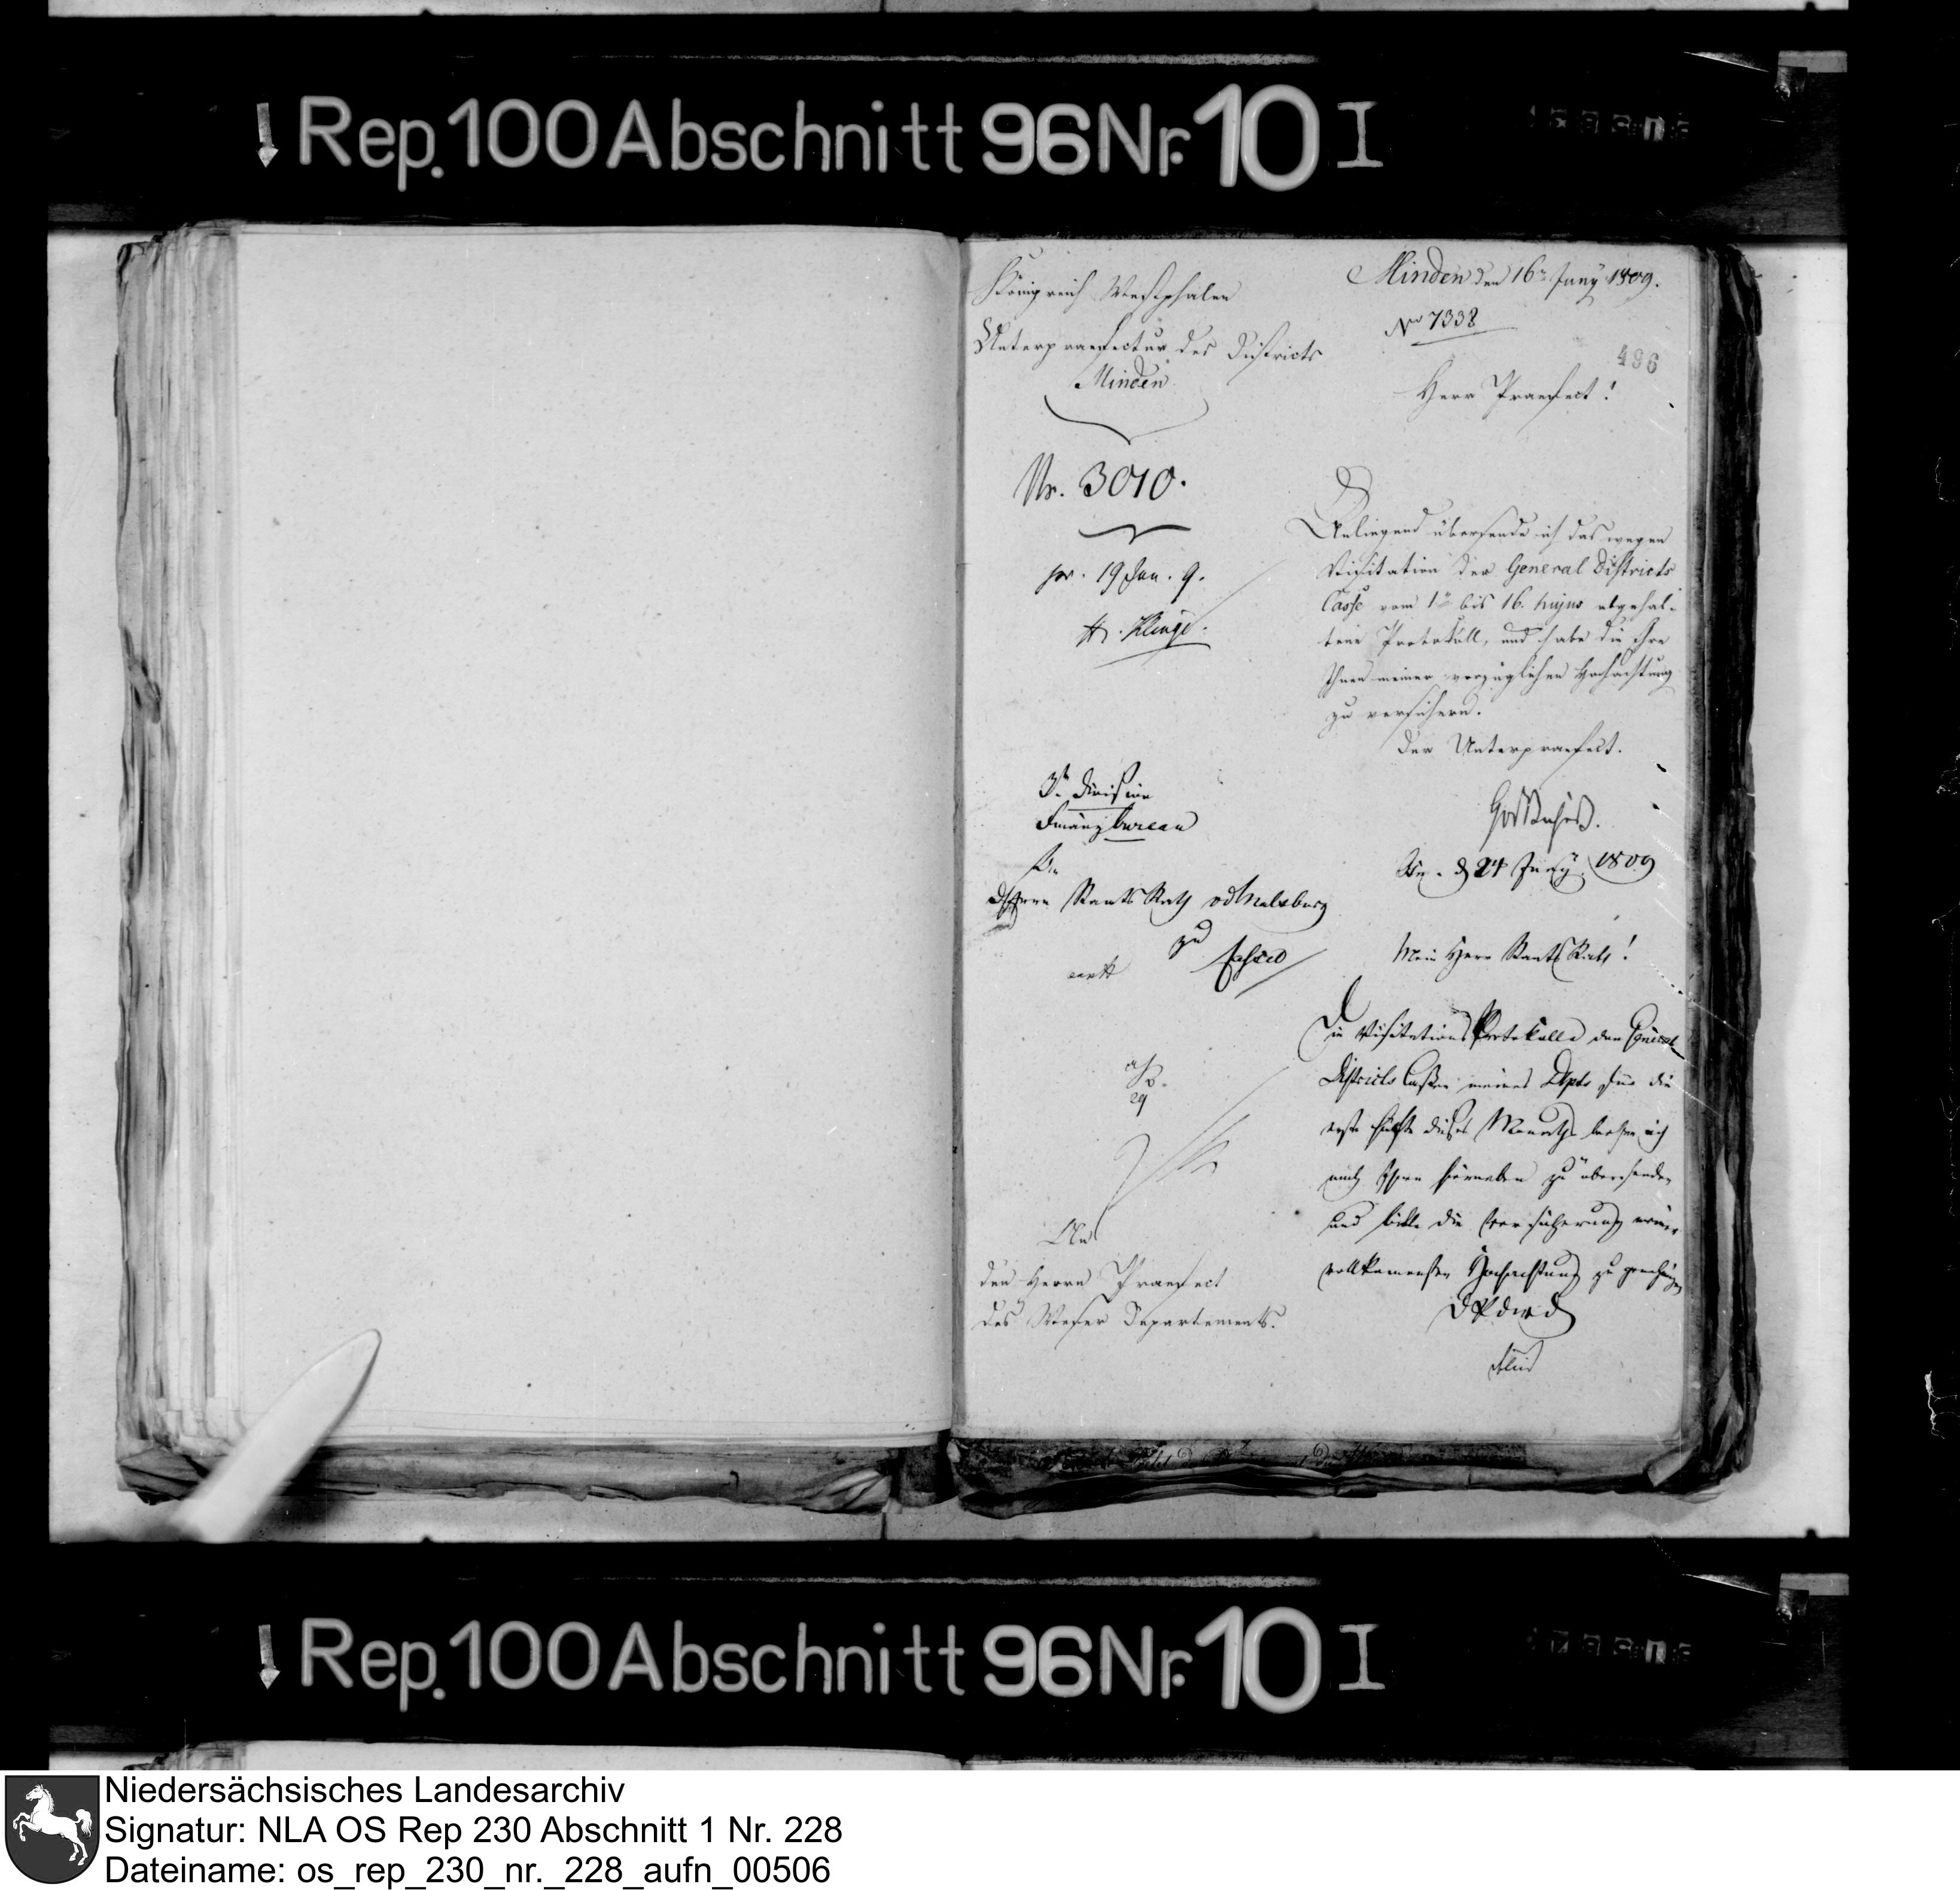 Rep. 100 Abschnitt 96 Nr. 10 I
Königreich Westphalen
Unterpraefectur des Districts
Minden
Nr. 3010.
pr. 19 Jun. 9.
H. Klinge.
Minden den 16n Juny 1809.
No 7338
496
Herr Praefect!
Anliegend übersende ich das wegen
Visitation der General Districts
Casse vom 1n bis 16. hujus abgehal-
tene Protokoll, und habe die Ehre
Ihnen meiner vorzüglichen Hochachtung
zu versichern.
Der Unterpraefect.
3e Division
Finanz bureau
An
d Herrn Staats Rath v d Malsburg
zu Cassel
Osn. d 24 Juny 1809
Mein Herr Staats Rath!
Die Visitations Protokolle der General
Districts Cassen meines Dpts für die
erste Hälfte dieses Monaths beehre ich
mich Ihnen hierneben zu übersenden
und bitte die Versicherung meiner
vollkommensten Hochachtung zu genehmigen
D P d W D
An
den Herrn Praefect
des Weser Departements.
Rep. 100 Abschnitt 96 Nr. 10 I
Niedersächsisches Landesarchiv
Signatur: NLA OS Rep 230 Abschnitt 1 Nr. 228
Dateiname: os_rep_230_nr._228_aufn_00506